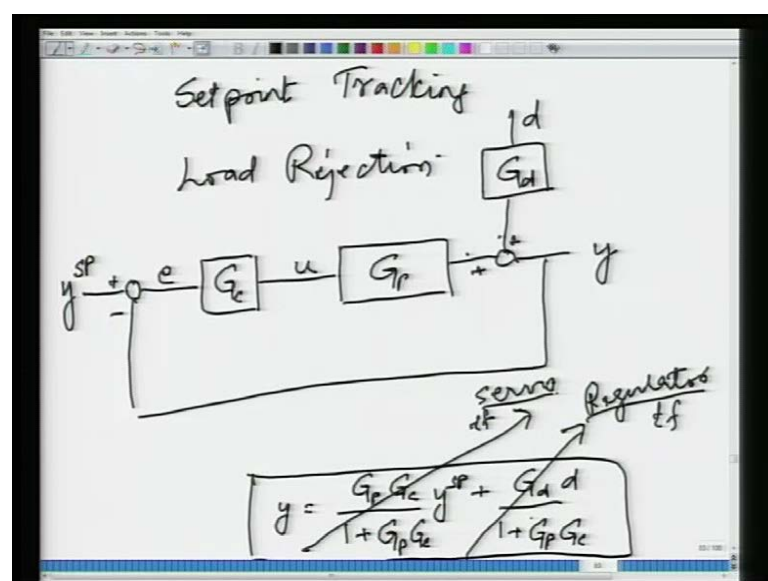 File Edit View Insert Actions Tools Help
Setpoint Tracking
Load Rejection
d
G_d
y^SP + e G_c u G_p + + y
-
servo tf
Regulatory tf
y = G_p G_c / 1 + G_p G_c y^SP + G_d d / 1 + G_p G_c